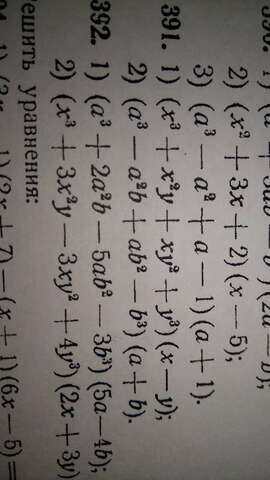 2) (x² + 3x + 2) (x − 5);
3) (a³ − a² + a − 1) (a + 1).
391. 1) (x³ + x²y + xy² + y³) (x − y);
2) (a³ − a²b + ab² − b³) (a + b).
392. 1) (a³ + 2a²b − 5ab² − 3b³) (5a − 4b);
2) (x³ + 3x²y − 3xy² + 4y³) (2x + 3y)
уравнения:
(2x + 7) − (x + 1) (6x − 5) =